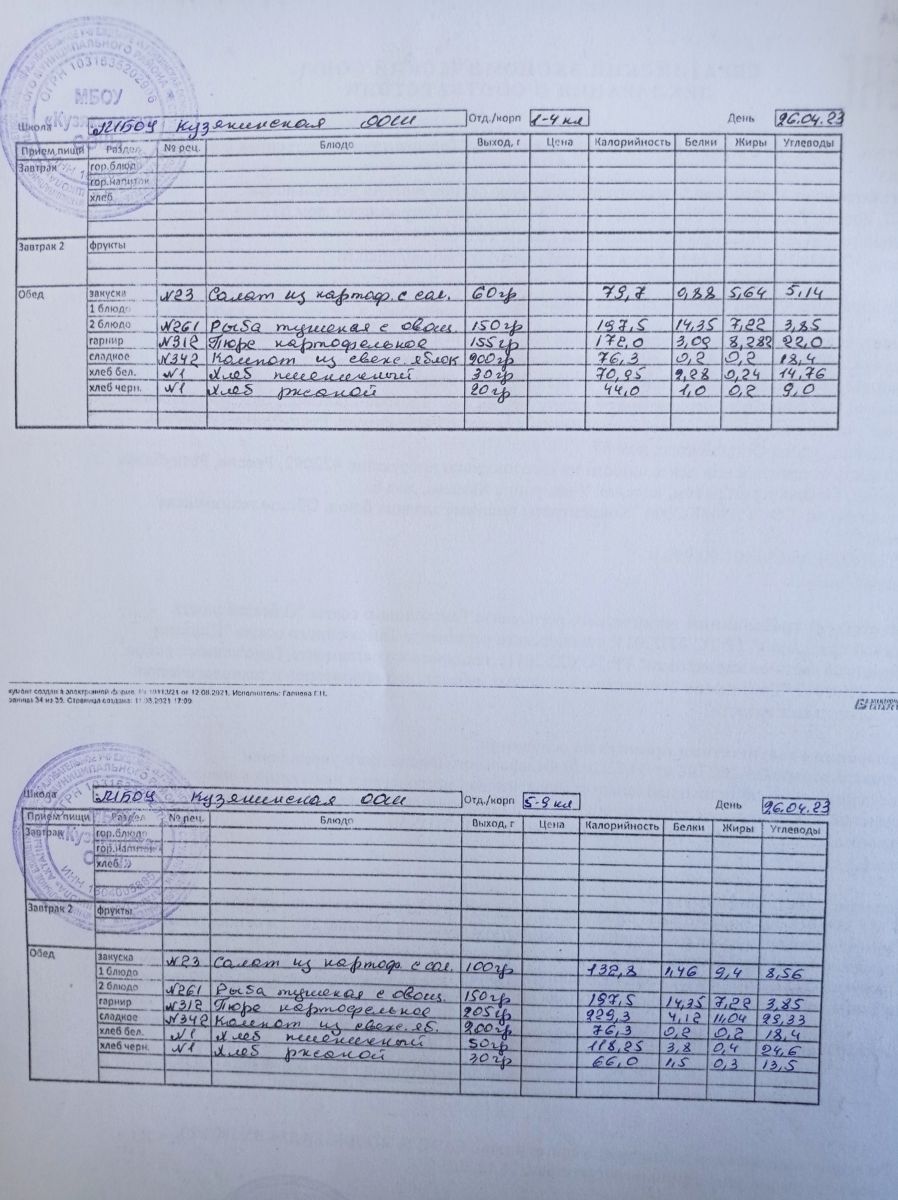 МБОУ
ОГРН 1031635202976
Школа МБОУ Кузякинская ООШ Отд./корп 1-4 кл День 26.04.23
Прием пищи Раздел № рец. Блюдо Выход, г Цена Калорийность Белки Жиры Углеводы
Завтрак гор.блюдо
гор.напиток
хлеб
Завтрак 2 фрукты
Обед закуска №23 Салат из картоф. с сол. 60гр 79,7 0,88 5,64 5,14
1 блюдо
2 блюдо №261 Рыба тушеная с овощ. 150гр 197,5 14,35 7,22 3,85
гарнир №312 Пюре картофельное 155гр 172,0 3,09 8,282 22,0
сладкое №342 Компот из свеж. яблок 200гр 76,3 0,2 0,2 18,4
хлеб бел. №1 Хлеб пшеничный 30гр 70,95 2,28 0,24 14,76
хлеб черн. №1 Хлеб ржаной 20гр 44,0 1,0 0,2 9,0
кумент создан в электронной форме. № 10113/21 от 12.08.2021. Исполнитель: Галиева Г.Н.
аница 34 из 39. Страница создана: 11.08.2021 17:09
Школа МБОУ Кузякинская ООШ Отд./корп 5-9 кл День 26.04.23
Прием пищи Раздел № рец. Блюдо Выход, г Цена Калорийность Белки Жиры Углеводы
Завтрак гор.блюдо
гор.напиток
хлеб
Завтрак 2 фрукты
Обед закуска №23 Салат из картоф. с сол. 100гр 132,8 1,46 9,4 8,56
1 блюдо
2 блюдо №261 Рыба тушеная с овощ. 150гр 197,5 14,35 7,22 3,85
гарнир №312 Пюре картофельное 205гр 229,3 4,12 11,04 29,33
сладкое №342 Компот из свеж. яб. 200гр 76,3 0,2 0,2 18,4
хлеб бел. №1 Хлеб пшеничный 50гр 118,25 3,8 0,4 24,6
хлеб черн. №1 Хлеб ржаной 30гр 66,0 1,5 0,3 13,5